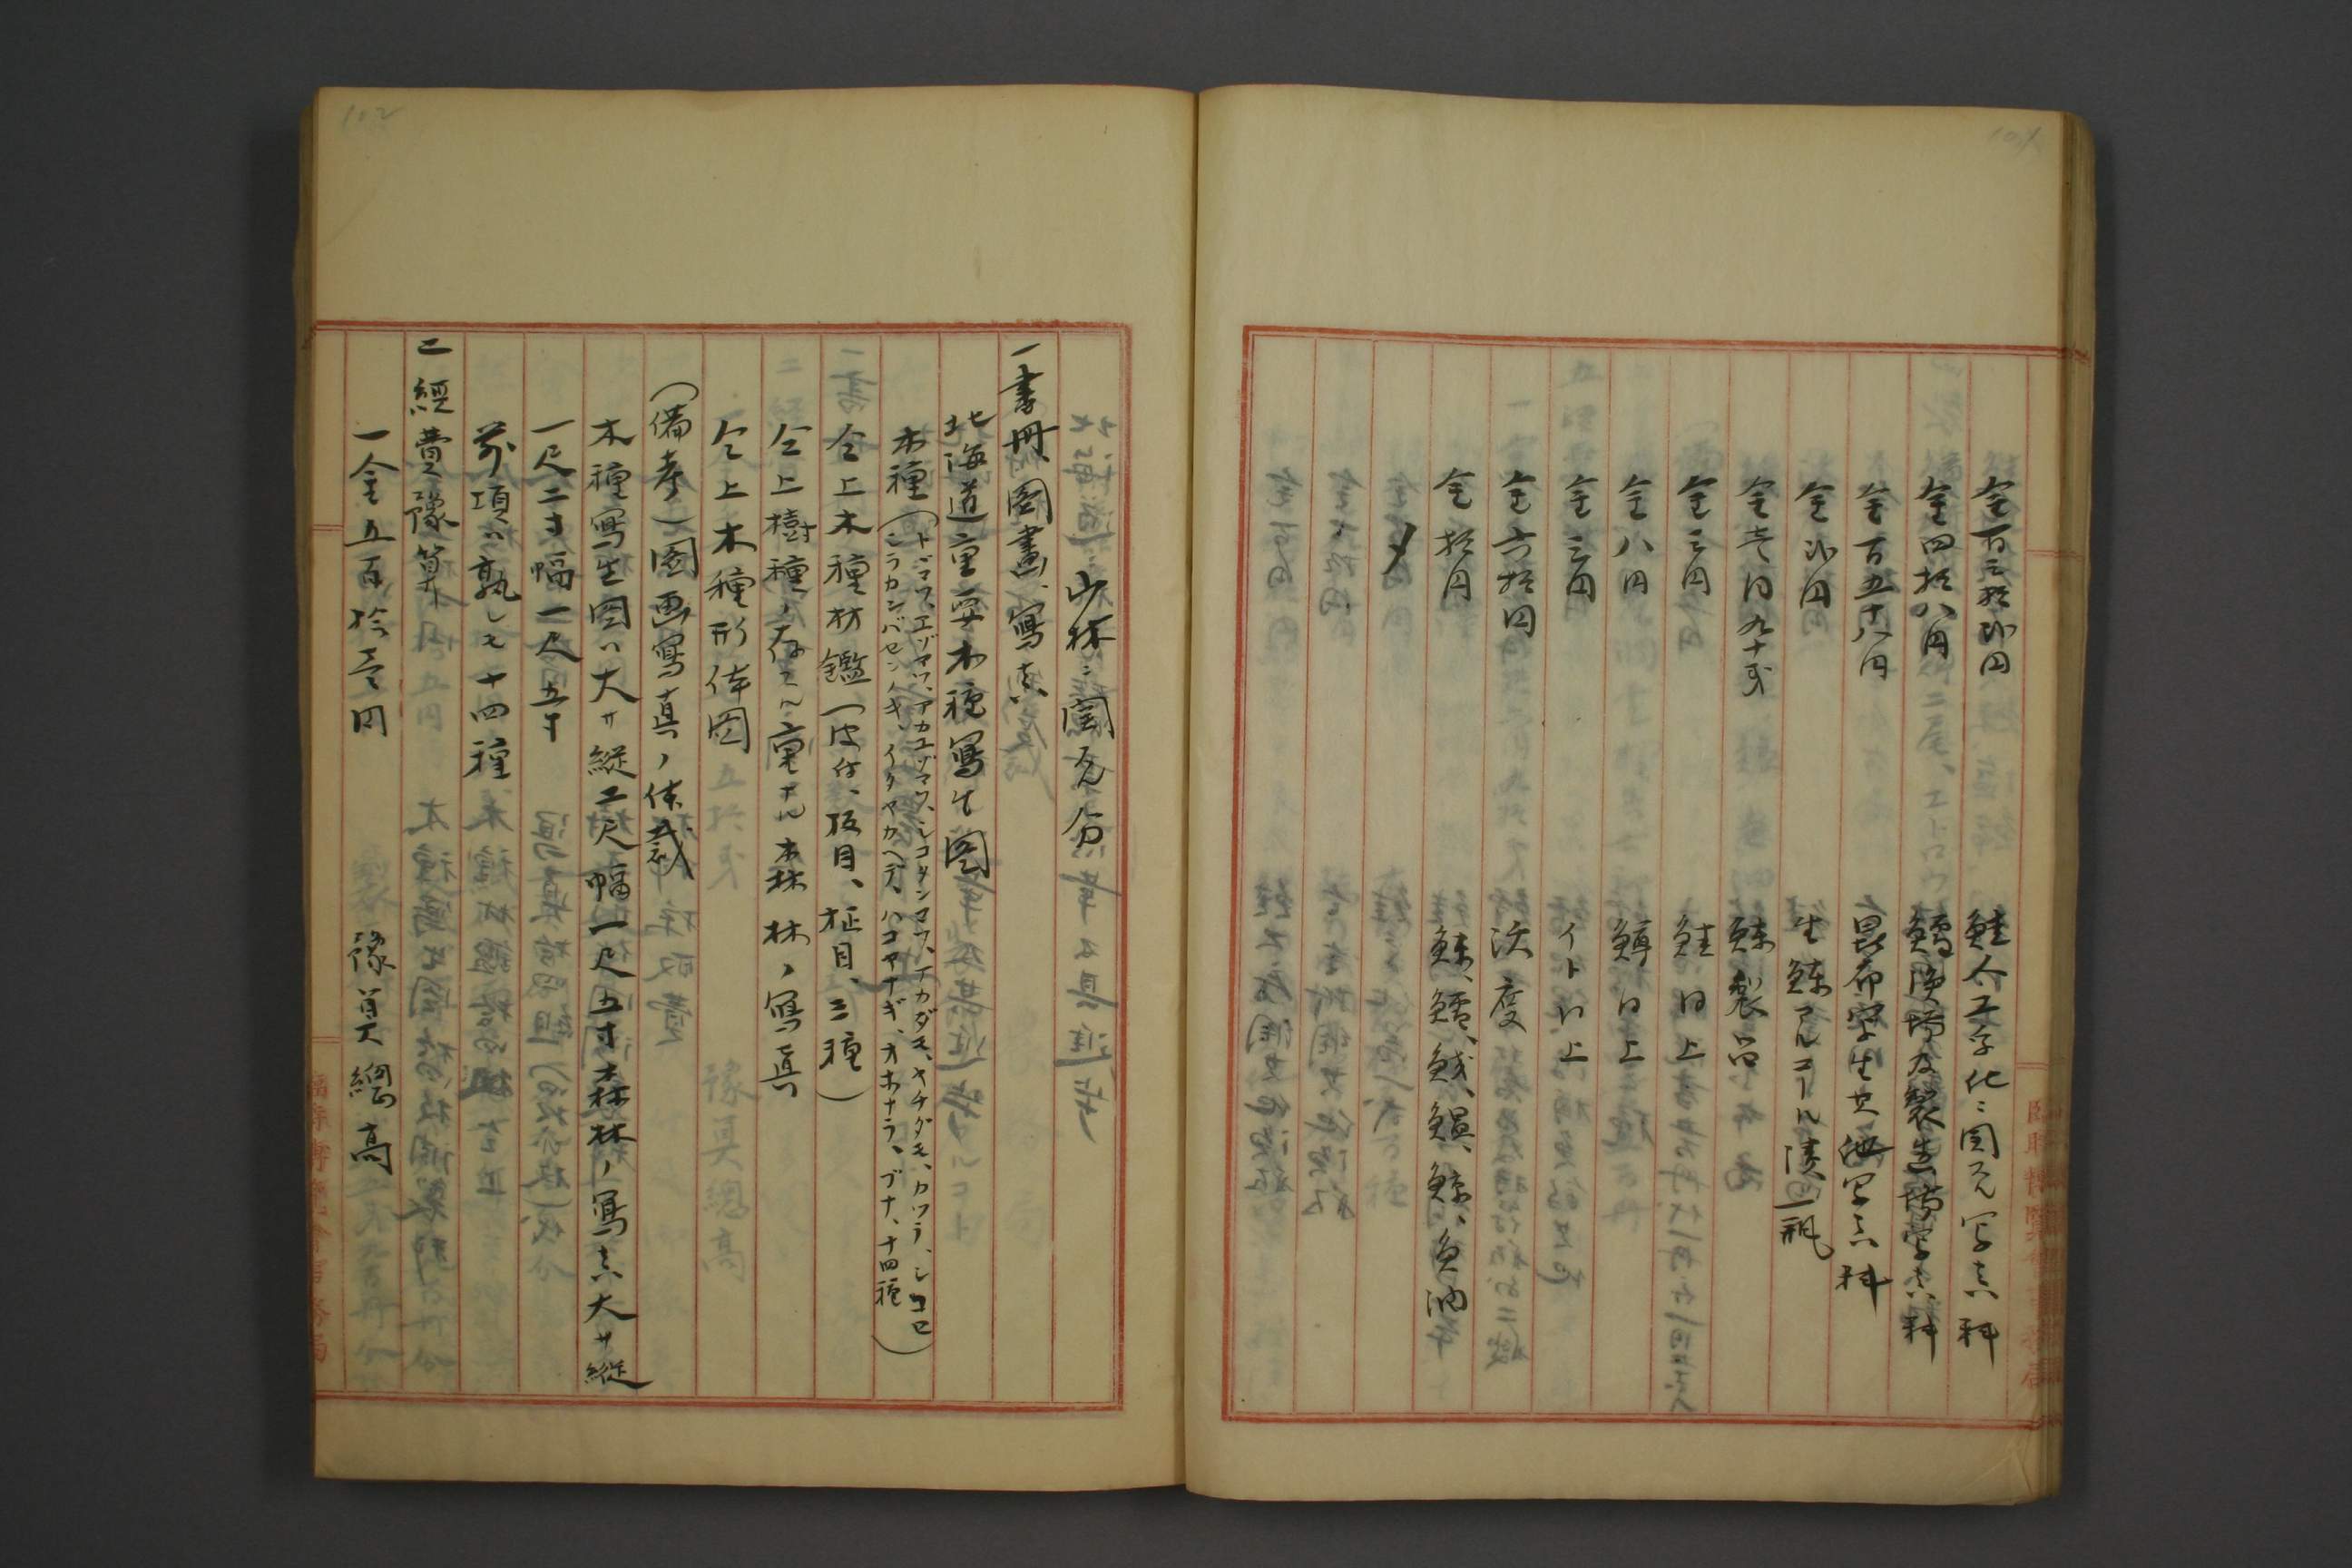 金百三拾弐円 鮭人工孚化ニ関スル写真料
金四拾八円 鱈漁場及製造場写真料
金百五十八円 昆布写生其他写真料
金弐円 生鰊アルコール漬一瓶
金壱円九十銭 鰊製品
金三円 鮭同上
金八円 鱒同上
金三円 イトウ上
金六拾円 沃度
金拾円 鰊、鱈、鯨、魚油
〆
山林ニ関スル分
一書冊、図畫、寫真
北海道重要木種寫生図
木種(トドマツ、エゾマツ、アカエゾマツ、シコタンマツ、アカダモ、ヤチダモ、カツラ、シコロ
シラカンバセンノキ、イタヤカヘデ、ハコヤナギ、オホナラ、ブナ、十四種)
仝上木種材鑑(皮付、板目、柾目、三種)
仝上樹種ノ存スル重ナル森林ノ寫真
仝上木種形体図
(備考)図画寫真ノ体裁
木種寫生図ハ大サ縦二尺幅一尺五寸森林ノ寫真大サ縦
一尺二寸幅一尺五寸
前項ハ孰レモ十四種
二經費豫算
一金五百拾壱円 豫算總高
102